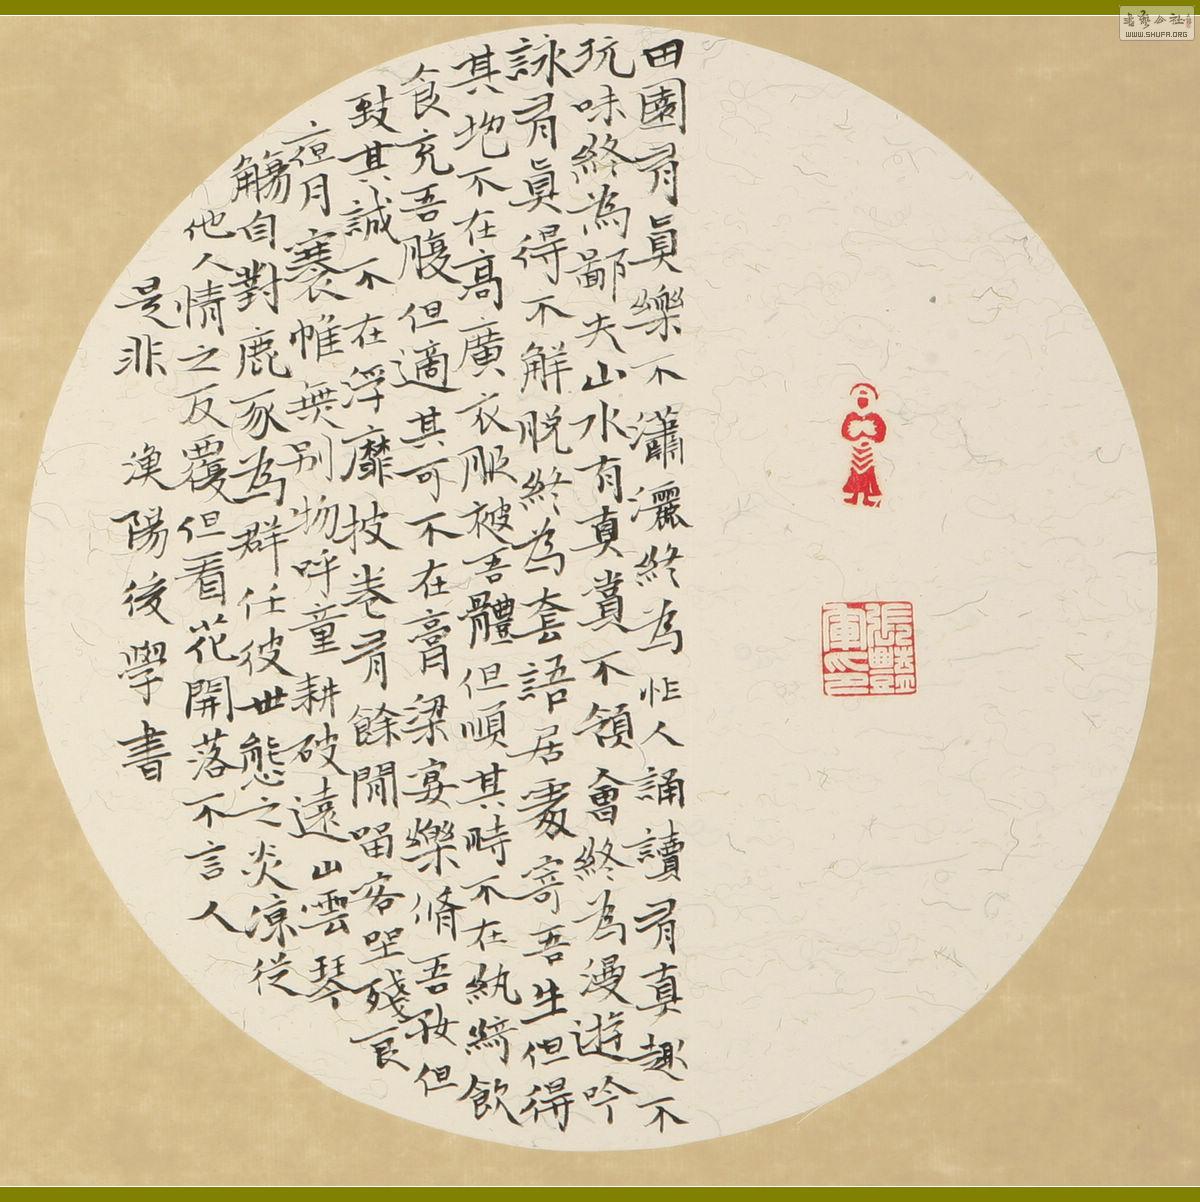 田園有眞樂不瀟灑終為忙人誦讀有真趣不
玩味終為鄙夫山水有真賞不領會終為漫遊吟
詠有眞得不解脱終為套語居處寄吾生但得
其地不在高廣衣服被吾體但順其時不在紈綺飲
食充吾腹但適其可不在膏梁宴樂脩吾好但
致其誠不在浮靡披卷有餘閒留客坐殘良
亱月褰帷無别物呼童耕破遠山雲琴
觴自對鹿豕為群任彼世態之炎凉從
他人情之反覆但看花開落不言人
是非 漁陽後學書
WWW.SHUFA.ORG